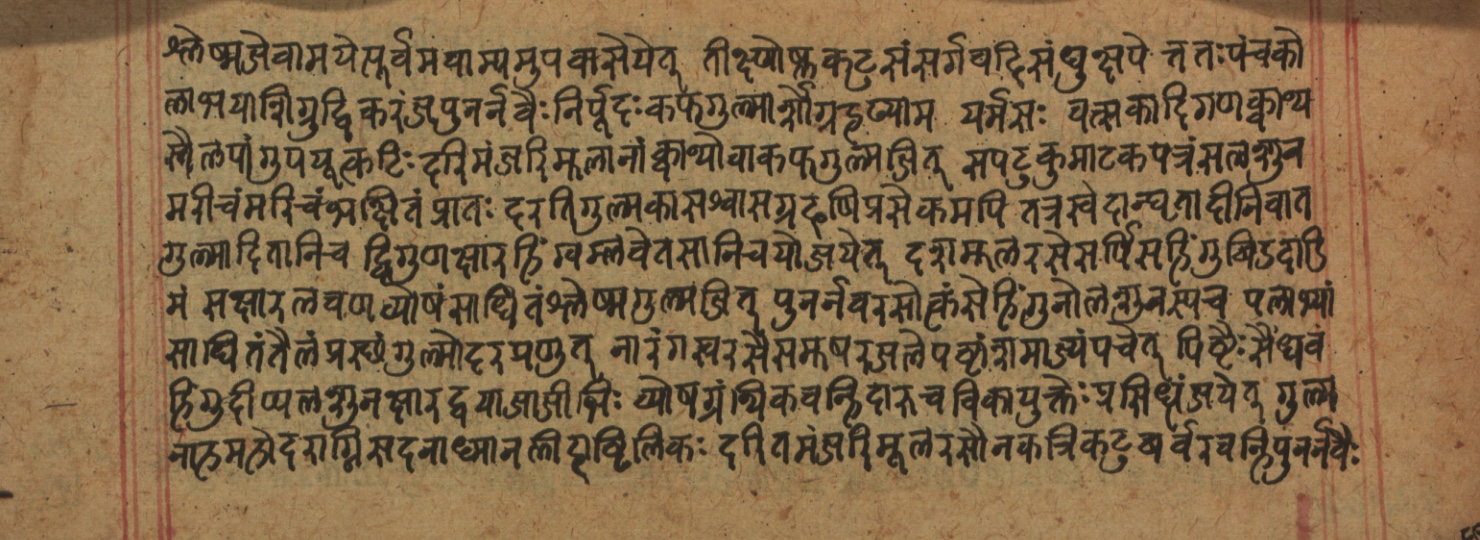 श्लेष्मजेवामयेत्पूर्वमवाम्यमुपवासयेत् तीक्ष्णोष्णकटुसंसर्गवह्निसंधुक्षपे त्ततःपंचको
लाभयाशिग्रुद्विकरंजपुनर्नवैः निर्पूदःकफगुल्मार्शोग्रहण्याम यर्मसः वत्सकादिगणक्वाथ
स्तैलपांगुपयूत्कटिः हरिमंजरिमूलानांक्वाथोवाकफगुल्मजित् सपटुकुमाटकपत्रंसलशुन
मरीचंमरिचंभक्षितंप्रातः हरतिगुल्मकासश्वासग्रहणिप्रसेकमपि तत्रस्वेदान्घृतादीनिवात
गुल्मादितानिच द्विगुणक्षारहिंग्वम्लवेतसानिचयोजयेत् दशमूलरसेसर्पिसहिंगुबिडदाडि
मं सक्षारलवणव्योषंसाधितंश्लेष्मगुल्मजित् पुनर्नवरसोत्कंसेहिंगुनोलशुनस्यच पलाभ्यां
साधितंतैलं गुल्मोदरप्रणुत् नारंगस्वरसे पचेत् पिष्टैःसैंधव
हिंगुदीप्यलशुनक्षारद्वयाजाजीभिः व्योषग्रंथिकवन्हिदारुचविकायुक्तेः जयेत् गुल्म
हरितमंजरिमूलरसोनकत्रिकटु वन्हिपुनर्नवैः